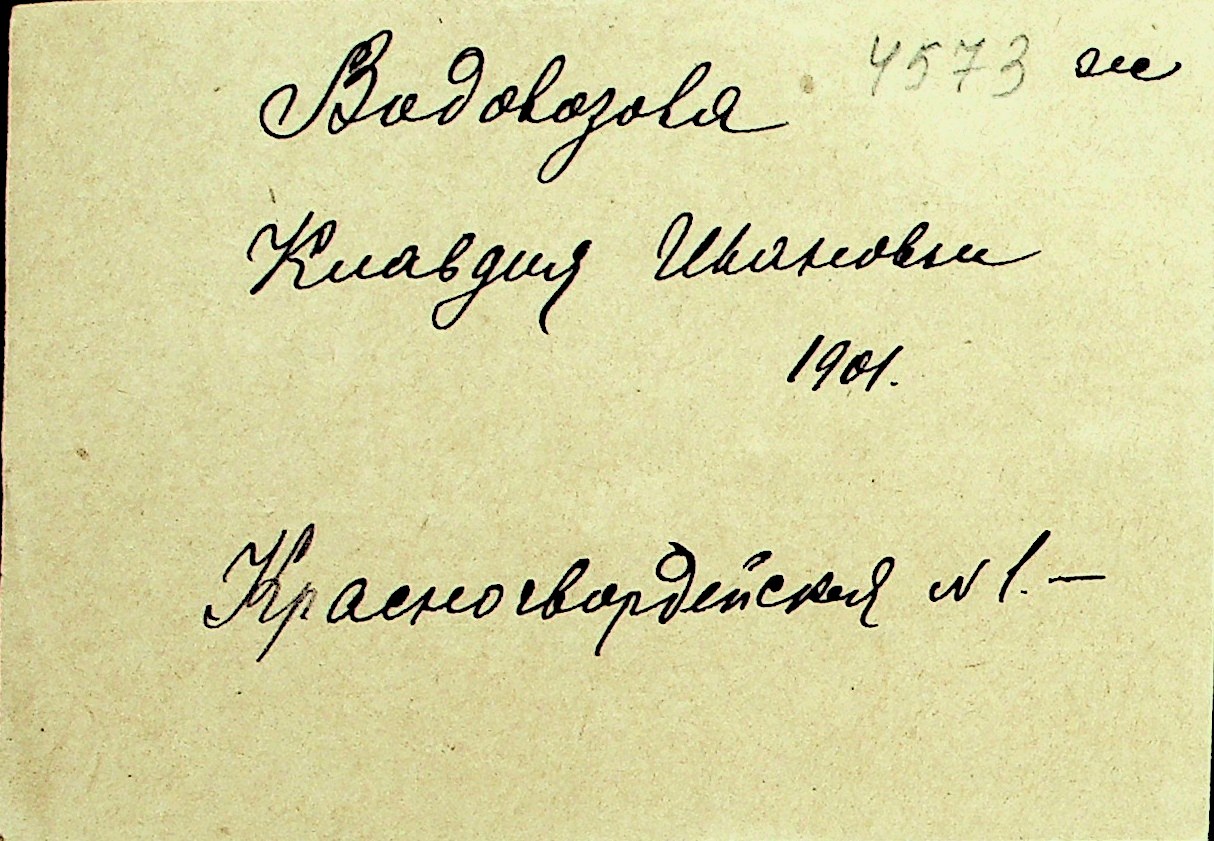 Водовозова 4573 ж
Клавдия Ивановн
1901.
Красногвардейская N 1. —